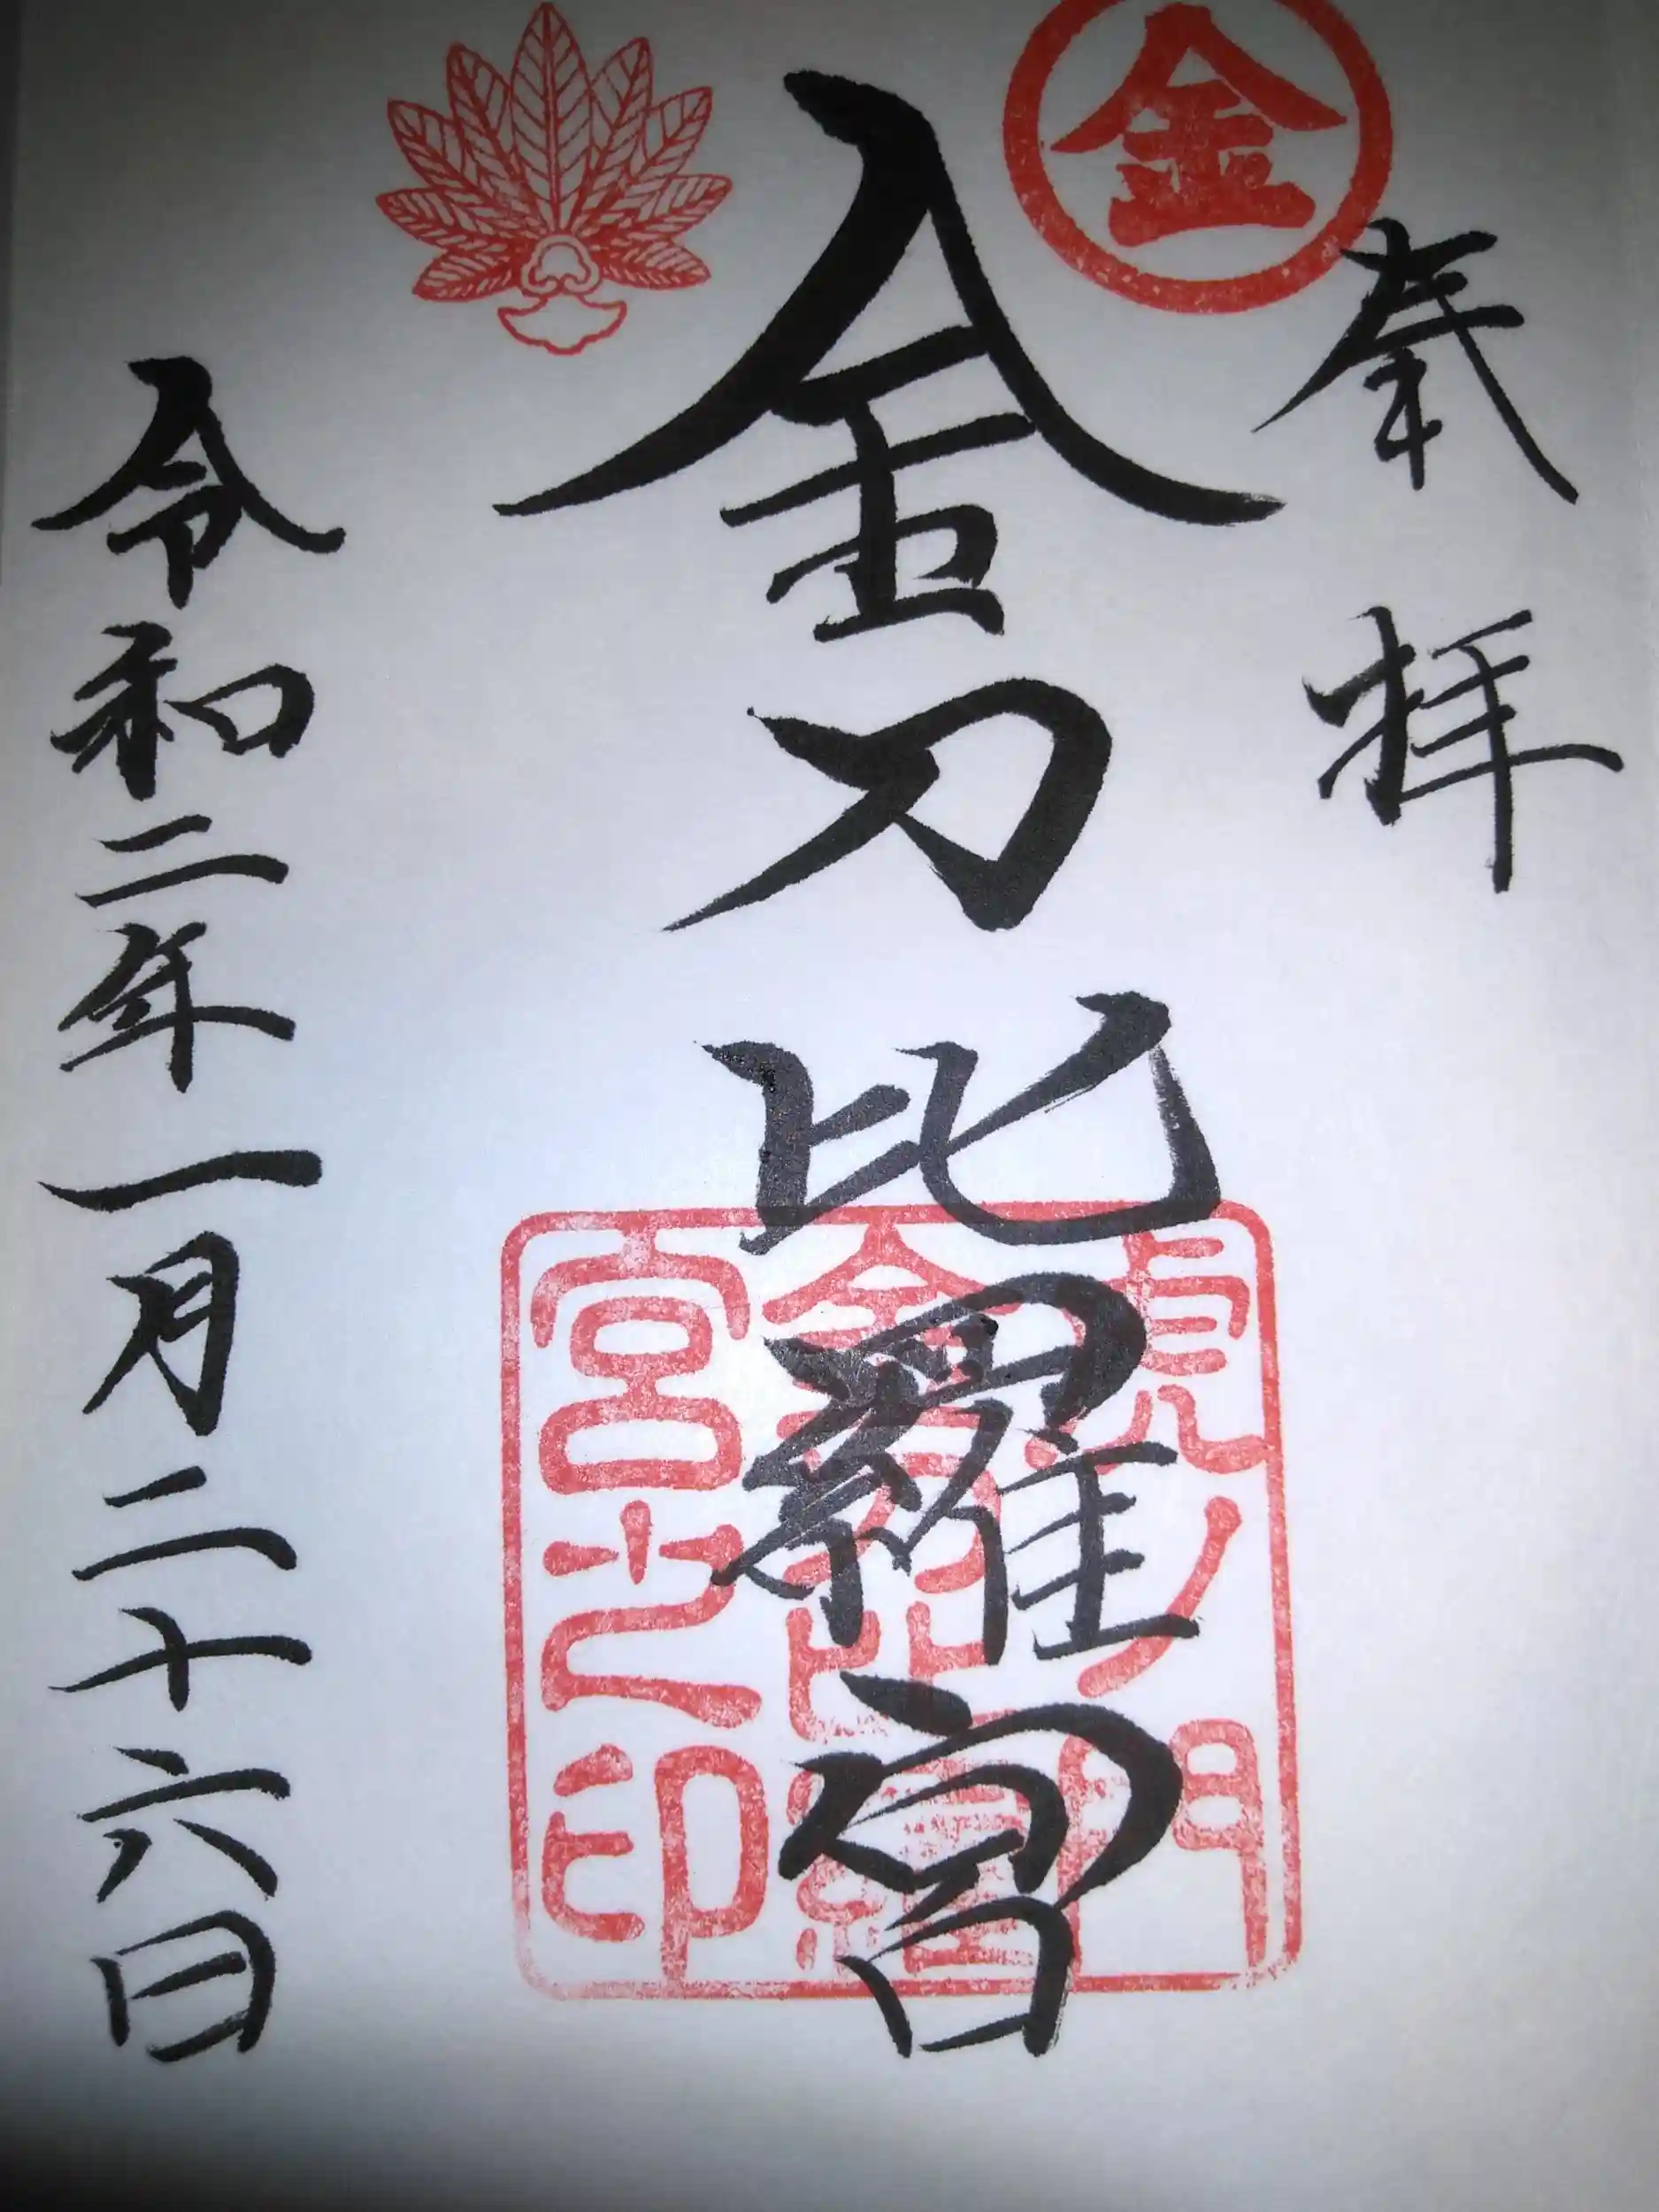 奉拝
金
金刀比羅宮
虎ノ門
金刀比羅
宮之印
令和二年一月二十六日